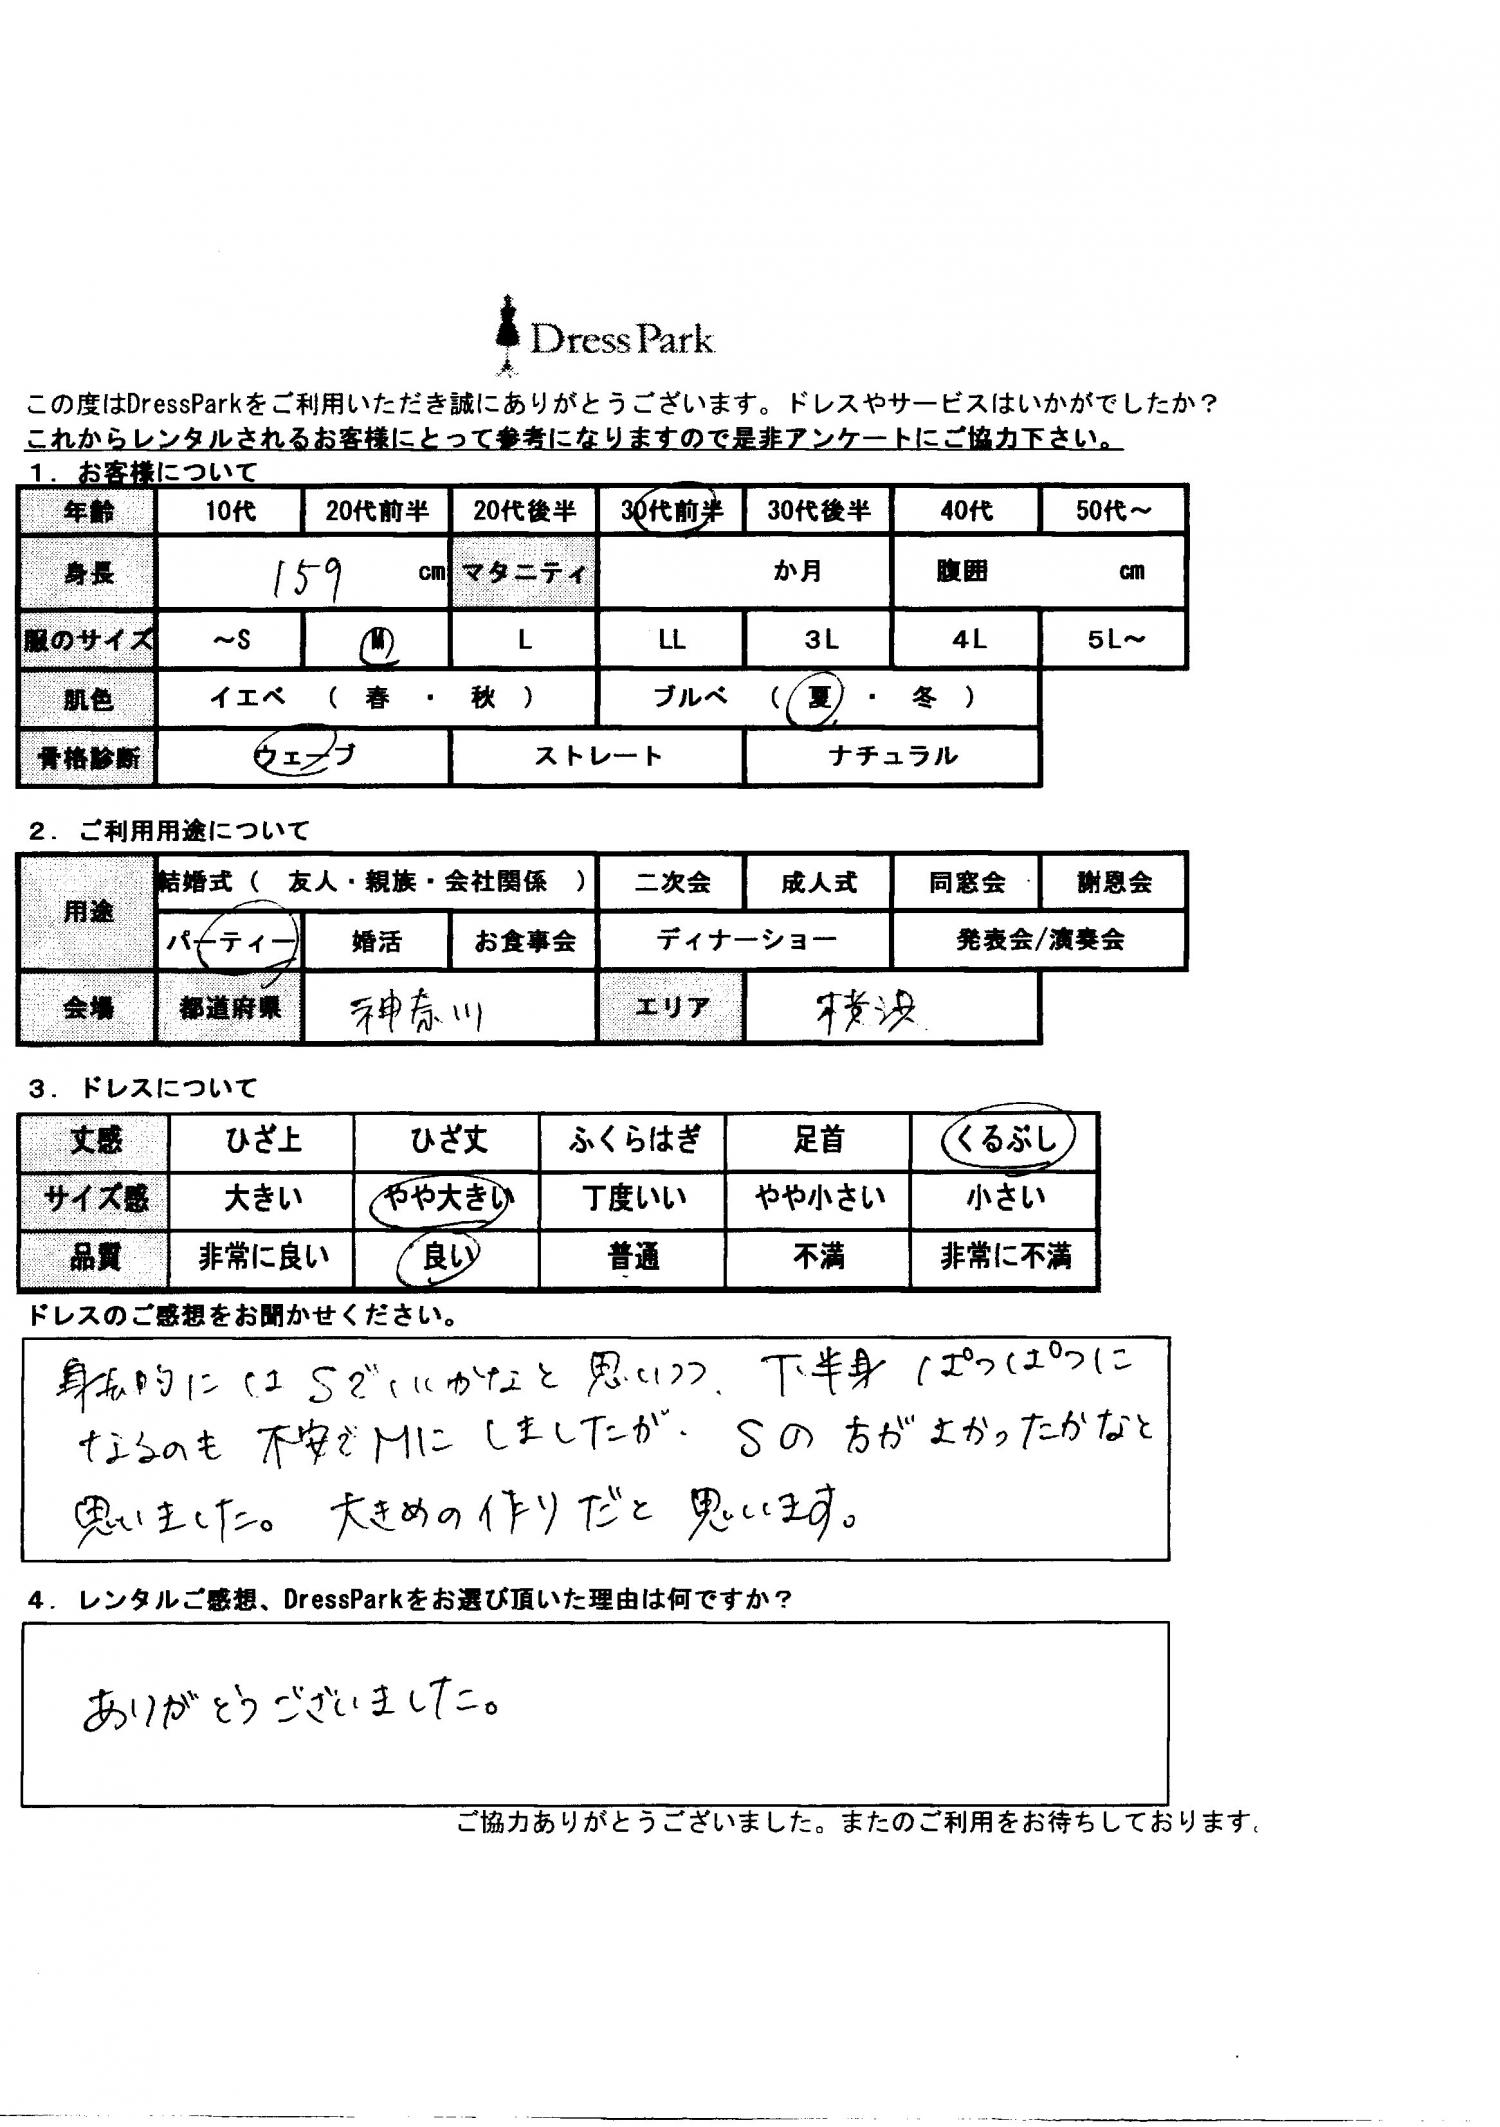 DressPark
この度はDressParkをご利用いただき誠にありがとうございます。ドレスやサービスはいかがでしたか？
これからレンタルされるお客様にとって参考になりますので是非アンケートにご協力下さい。
１．お客様について
年齢 10代 20代前半 20代後半 30代前半 30代後半 40代 50代～
身長 159 cm マタニティ か月 腹囲 cm
服のサイズ ～S M L LL 3L 4L 5L～
肌色 イエベ （ 春 ・ 秋 ） ブルベ （ 夏 ・ 冬 ）
骨格診断 ウェーブ ストレート ナチュラル
２．ご利用用途について
用途 結婚式（ 友人・親族・会社関係 ） 二次会 成人式 同窓会 謝恩会
パーティー 婚活 お食事会 ディナーショー 発表会/演奏会
会場 都道府県 神奈川 エリア 横浜
３．ドレスについて
丈感 ひざ上 ひざ丈 ふくらはぎ 足首 くるぶし
サイズ感 大きい やや大きい 丁度いい やや小さい 小さい
品質 非常に良い 良い 普通 不満 非常に不満
ドレスのご感想をお聞かせください。
身長的にはSでいいかなと思いつつ、下半身ぱつぱつに
なるのも不安でMにしましたが、Sの方がよかったかなと
思いました。大きめの作りだと思います。
４．レンタルご感想、DressParkをお選び頂いた理由は何ですか？
ありがとうございました。
ご協力ありがとうございました。またのご利用をお待ちしております。